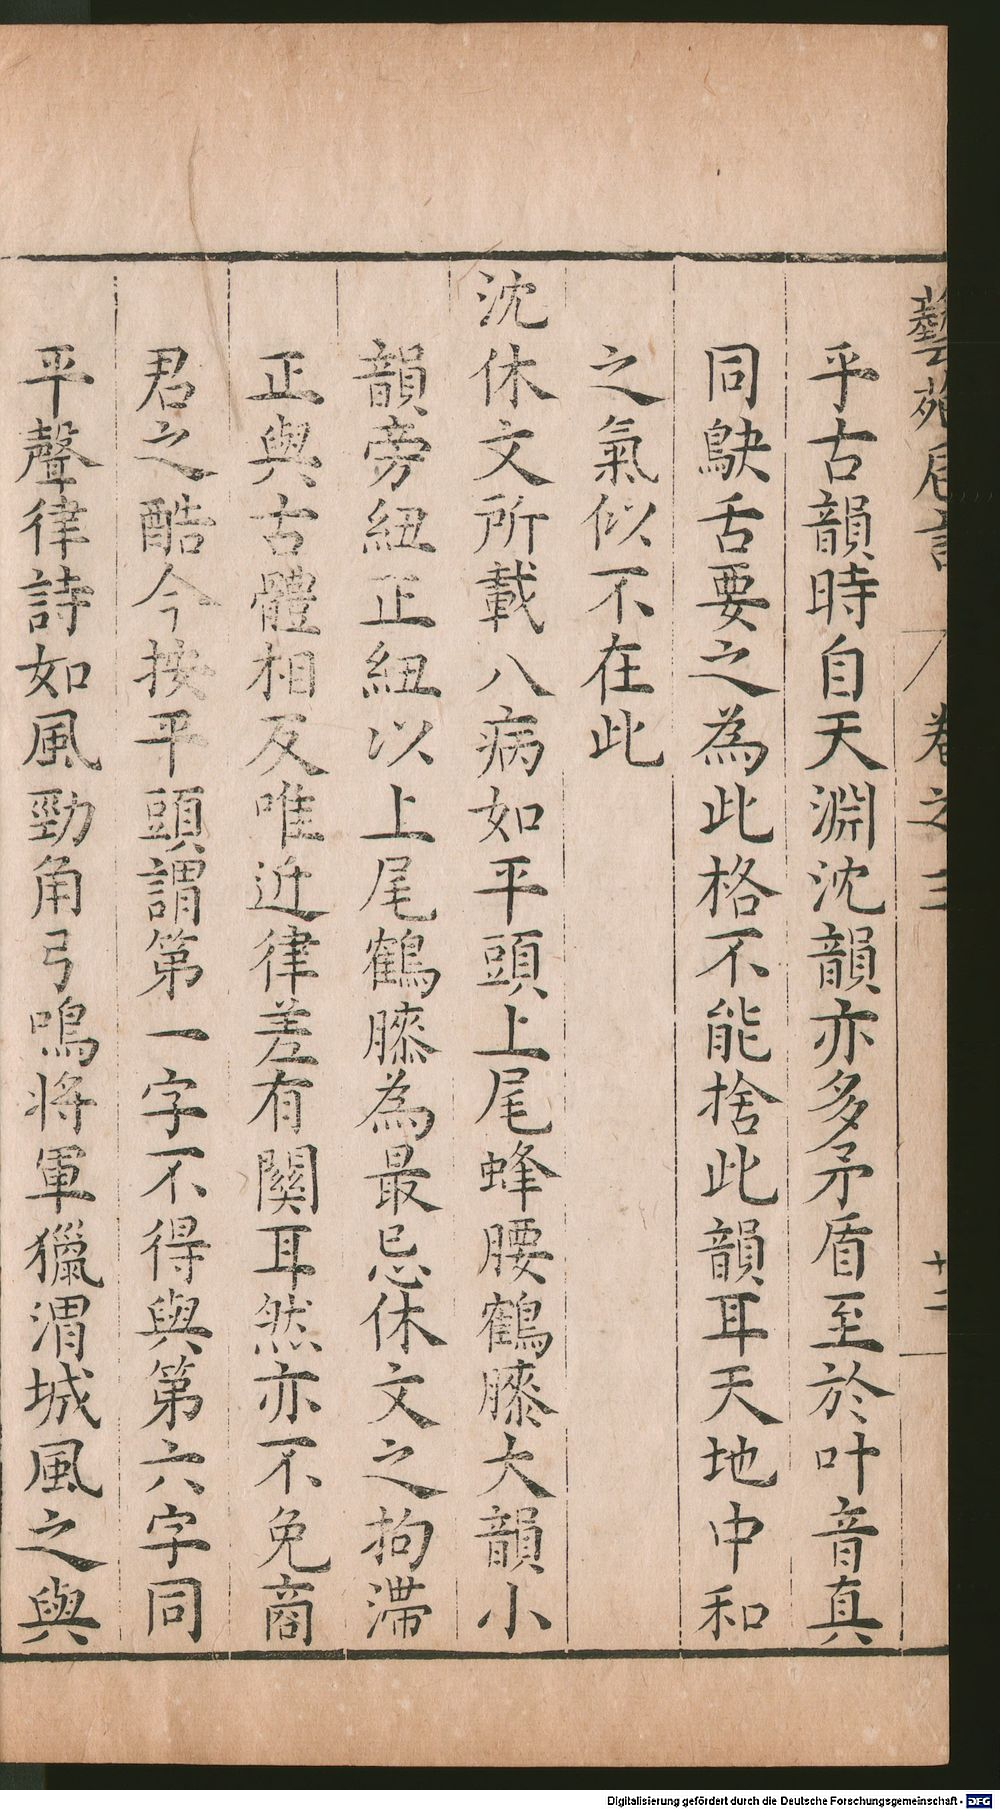 藝苑卮言 卷之三 十二
乎古韻時自天淵沈韻亦多矛盾至於叶音真
同鴃舌要之為此格不能捨此韻耳天地中和
之氣似不在此
沈休文所載八病如平頭上尾蜂腰鶴膝大韻小
韻旁紐正紐以上尾鶴膝為最忌休文之拘滯
正與古體相反唯近律差有關耳然亦不免商
君之酷今按平頭謂第一字不得與第六字同
平聲律詩如風勁角弓鳴將軍獵渭城風之與
Digitalisierung gefördert durch die Deutsche Forschungsgemeinschaft - DFG